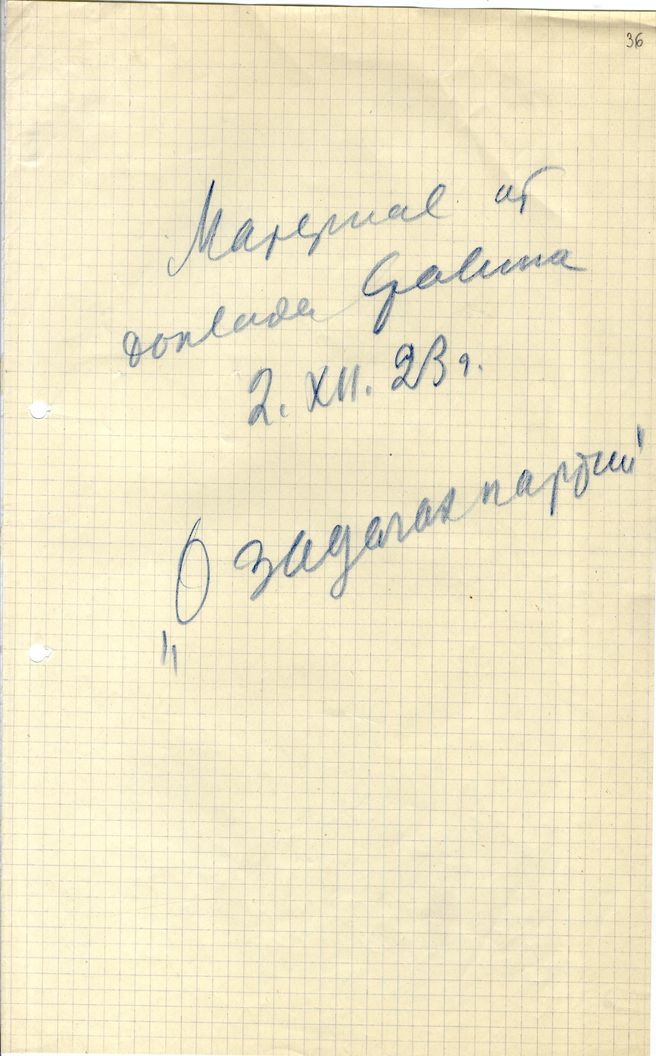 36
Материал от
доклада Сталина
2. XII. 23 г.
„О задачах партии"